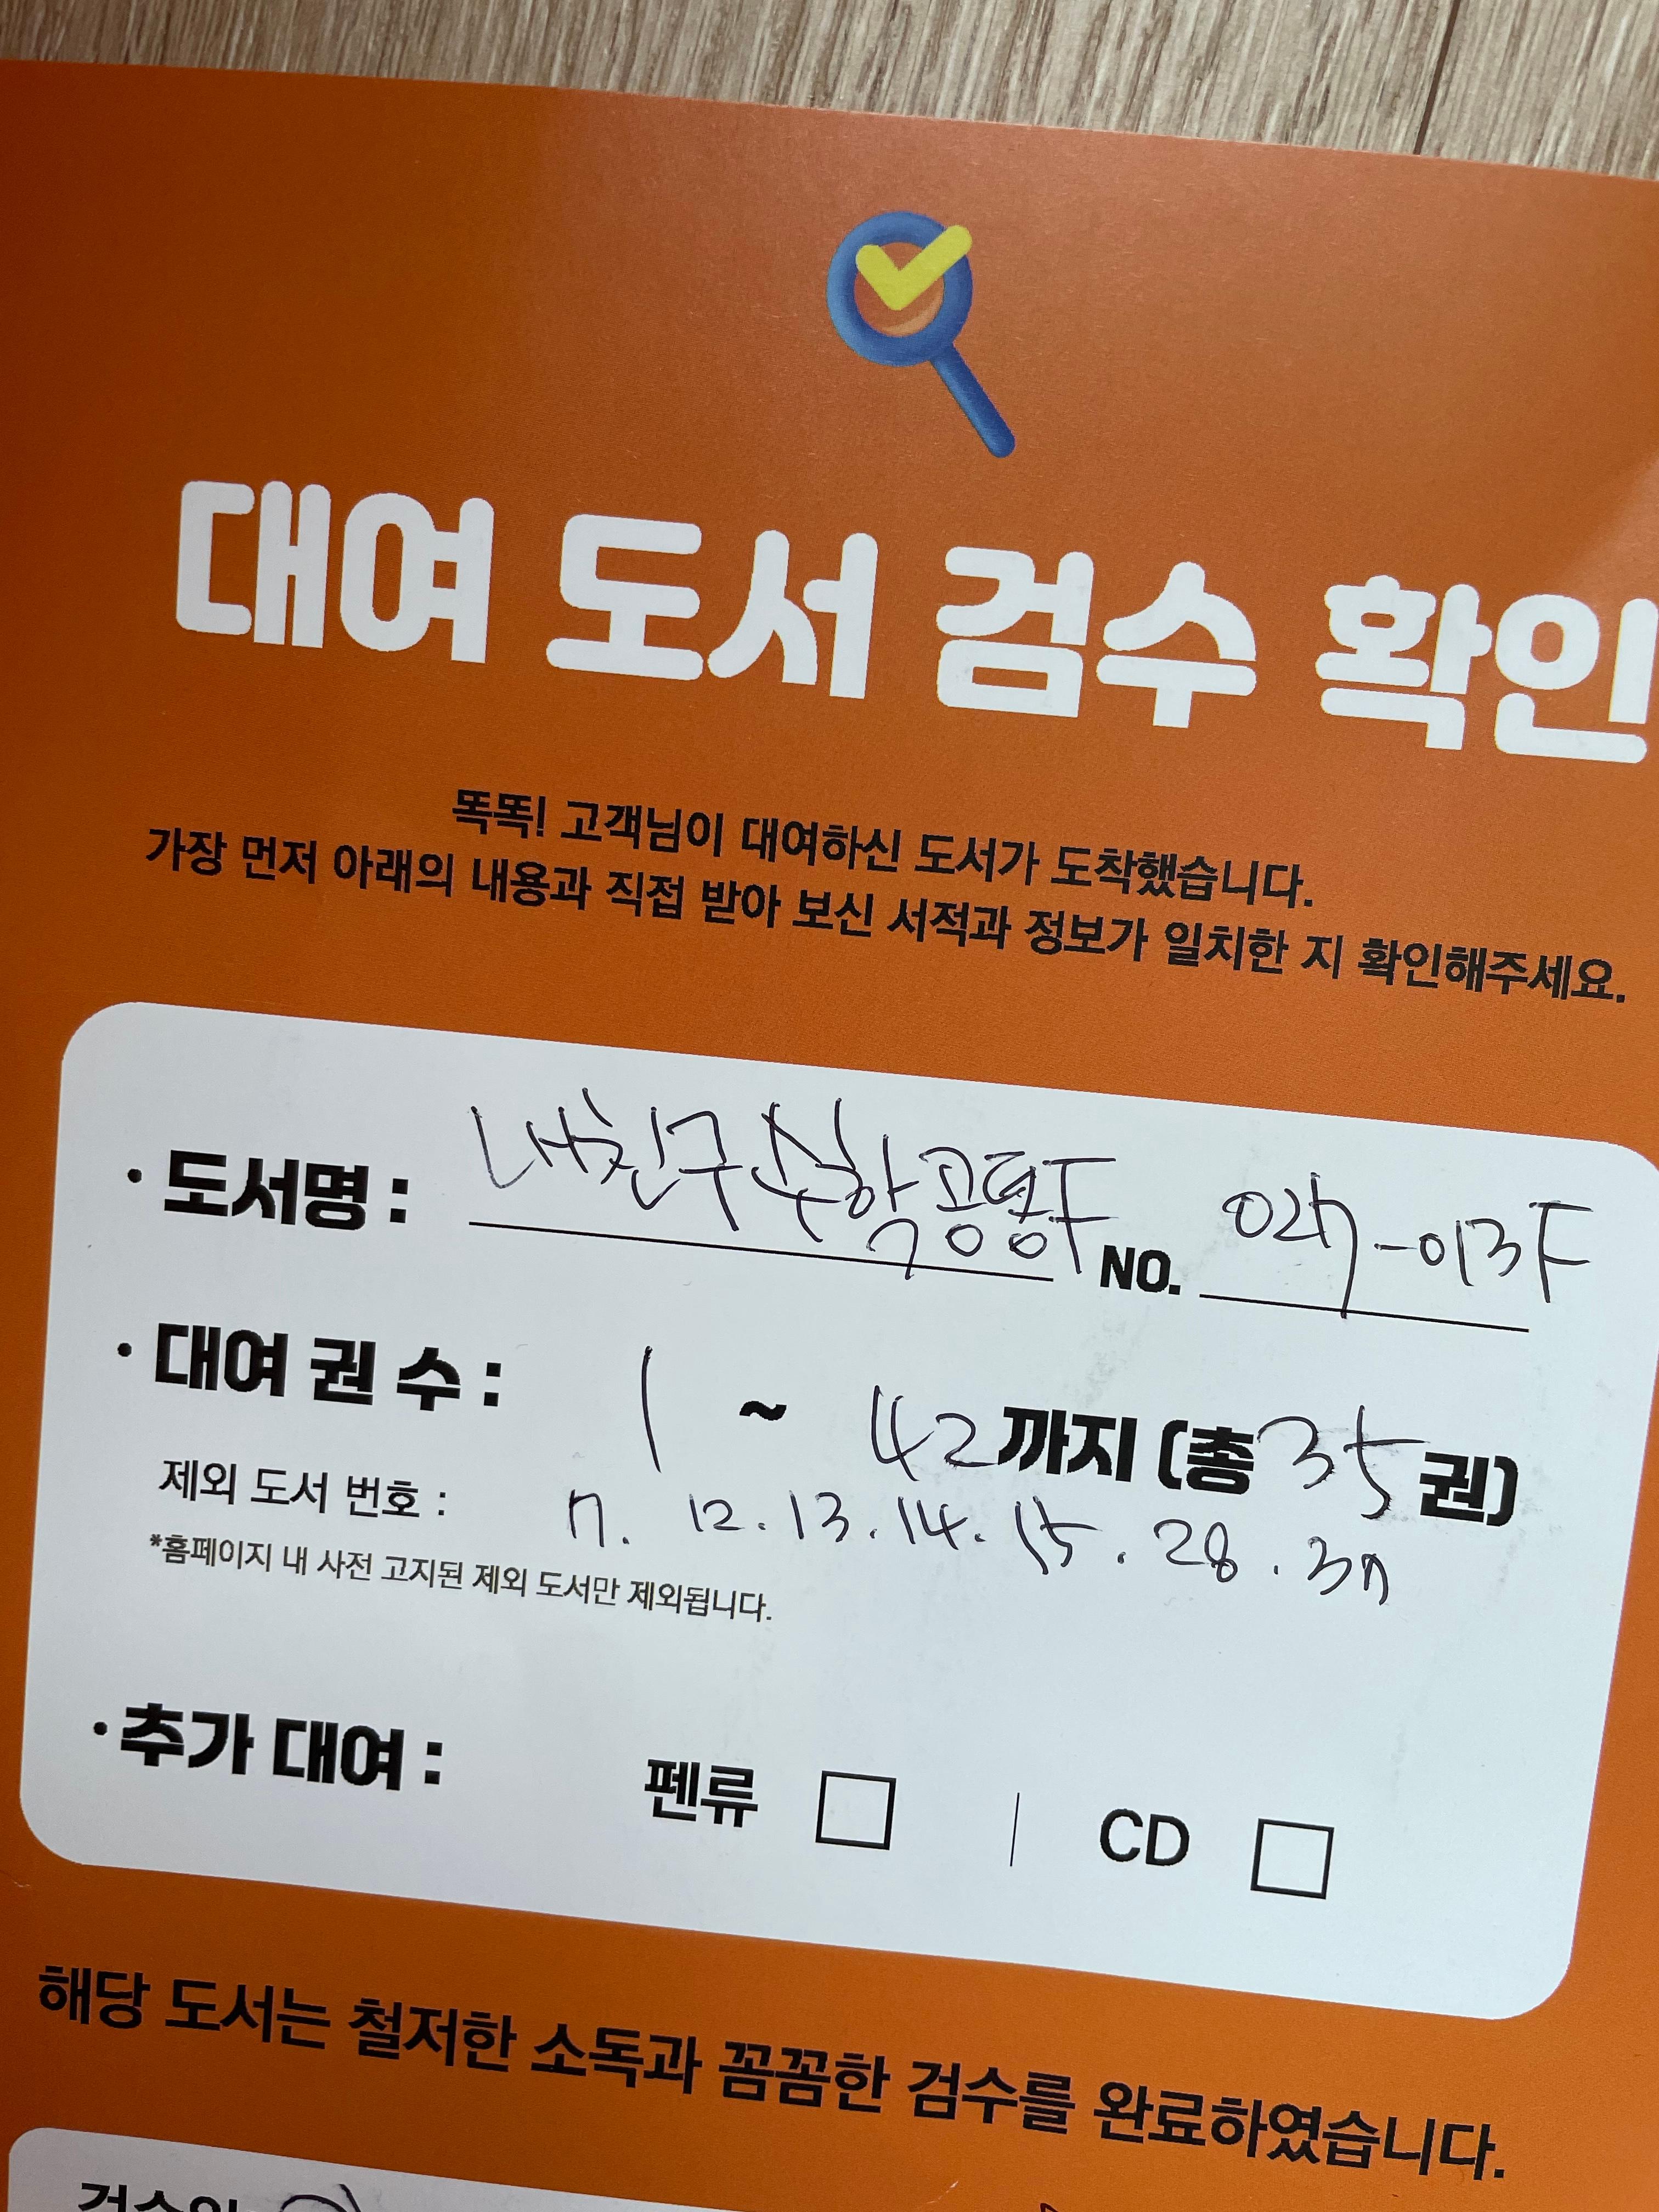 대여 도서 검수 확인
똑똑! 고객님이 대여하신 도서가 도착했습니다.
가장 먼저 아래의 내용과 직접 받아 보신 서적과 정보가 일치한 지 확인해주세요.
· 도서명 : 내친구수학공룡F NO. 027-013F
· 대여 권 수 : 1 ~ 42까지 (총 35권)
제외 도서 번호 : 7. 12. 13. 14. 15. 28. 37
*홈페이지 내 사전 고지된 제외 도서만 제외됩니다.
· 추가 대여 : 펜류 □ | CD □
해당 도서는 철저한 소독과 꼼꼼한 검수를 완료하였습니다.